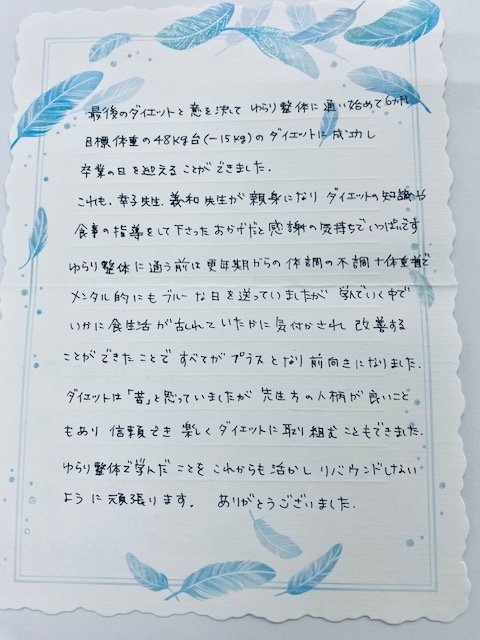 最後のダイエットと意を決して ゆらり整体に通い始めて6カ月
目標体重の48kg台(-15kg)のダイエットに成功し
卒業の日を迎えることができました。
これも、幸子先生、義和先生が親身になり ダイエットの知識や
食事の指導をして下さったおかげだと感謝の気持ちでいっぱいです
ゆらり整体に通う前は更年期からの体調の不調+体重増で
メンタル的にもブルーな日を送っていましたが 学んでいく中で
いかに食生活が乱れていたかに気付かされ 改善する
ことができたことで すべてがプラスとなり前向きになりました。
ダイエットは「苦」と思っていましたが 先生方の人柄が良いこと
もあり 信頼でき 楽しくダイエットに取り組むこともできました。
ゆらり整体で学んだことをこれからも活かし リバウンドしない
ように頑張ります。 ありがとうございました。